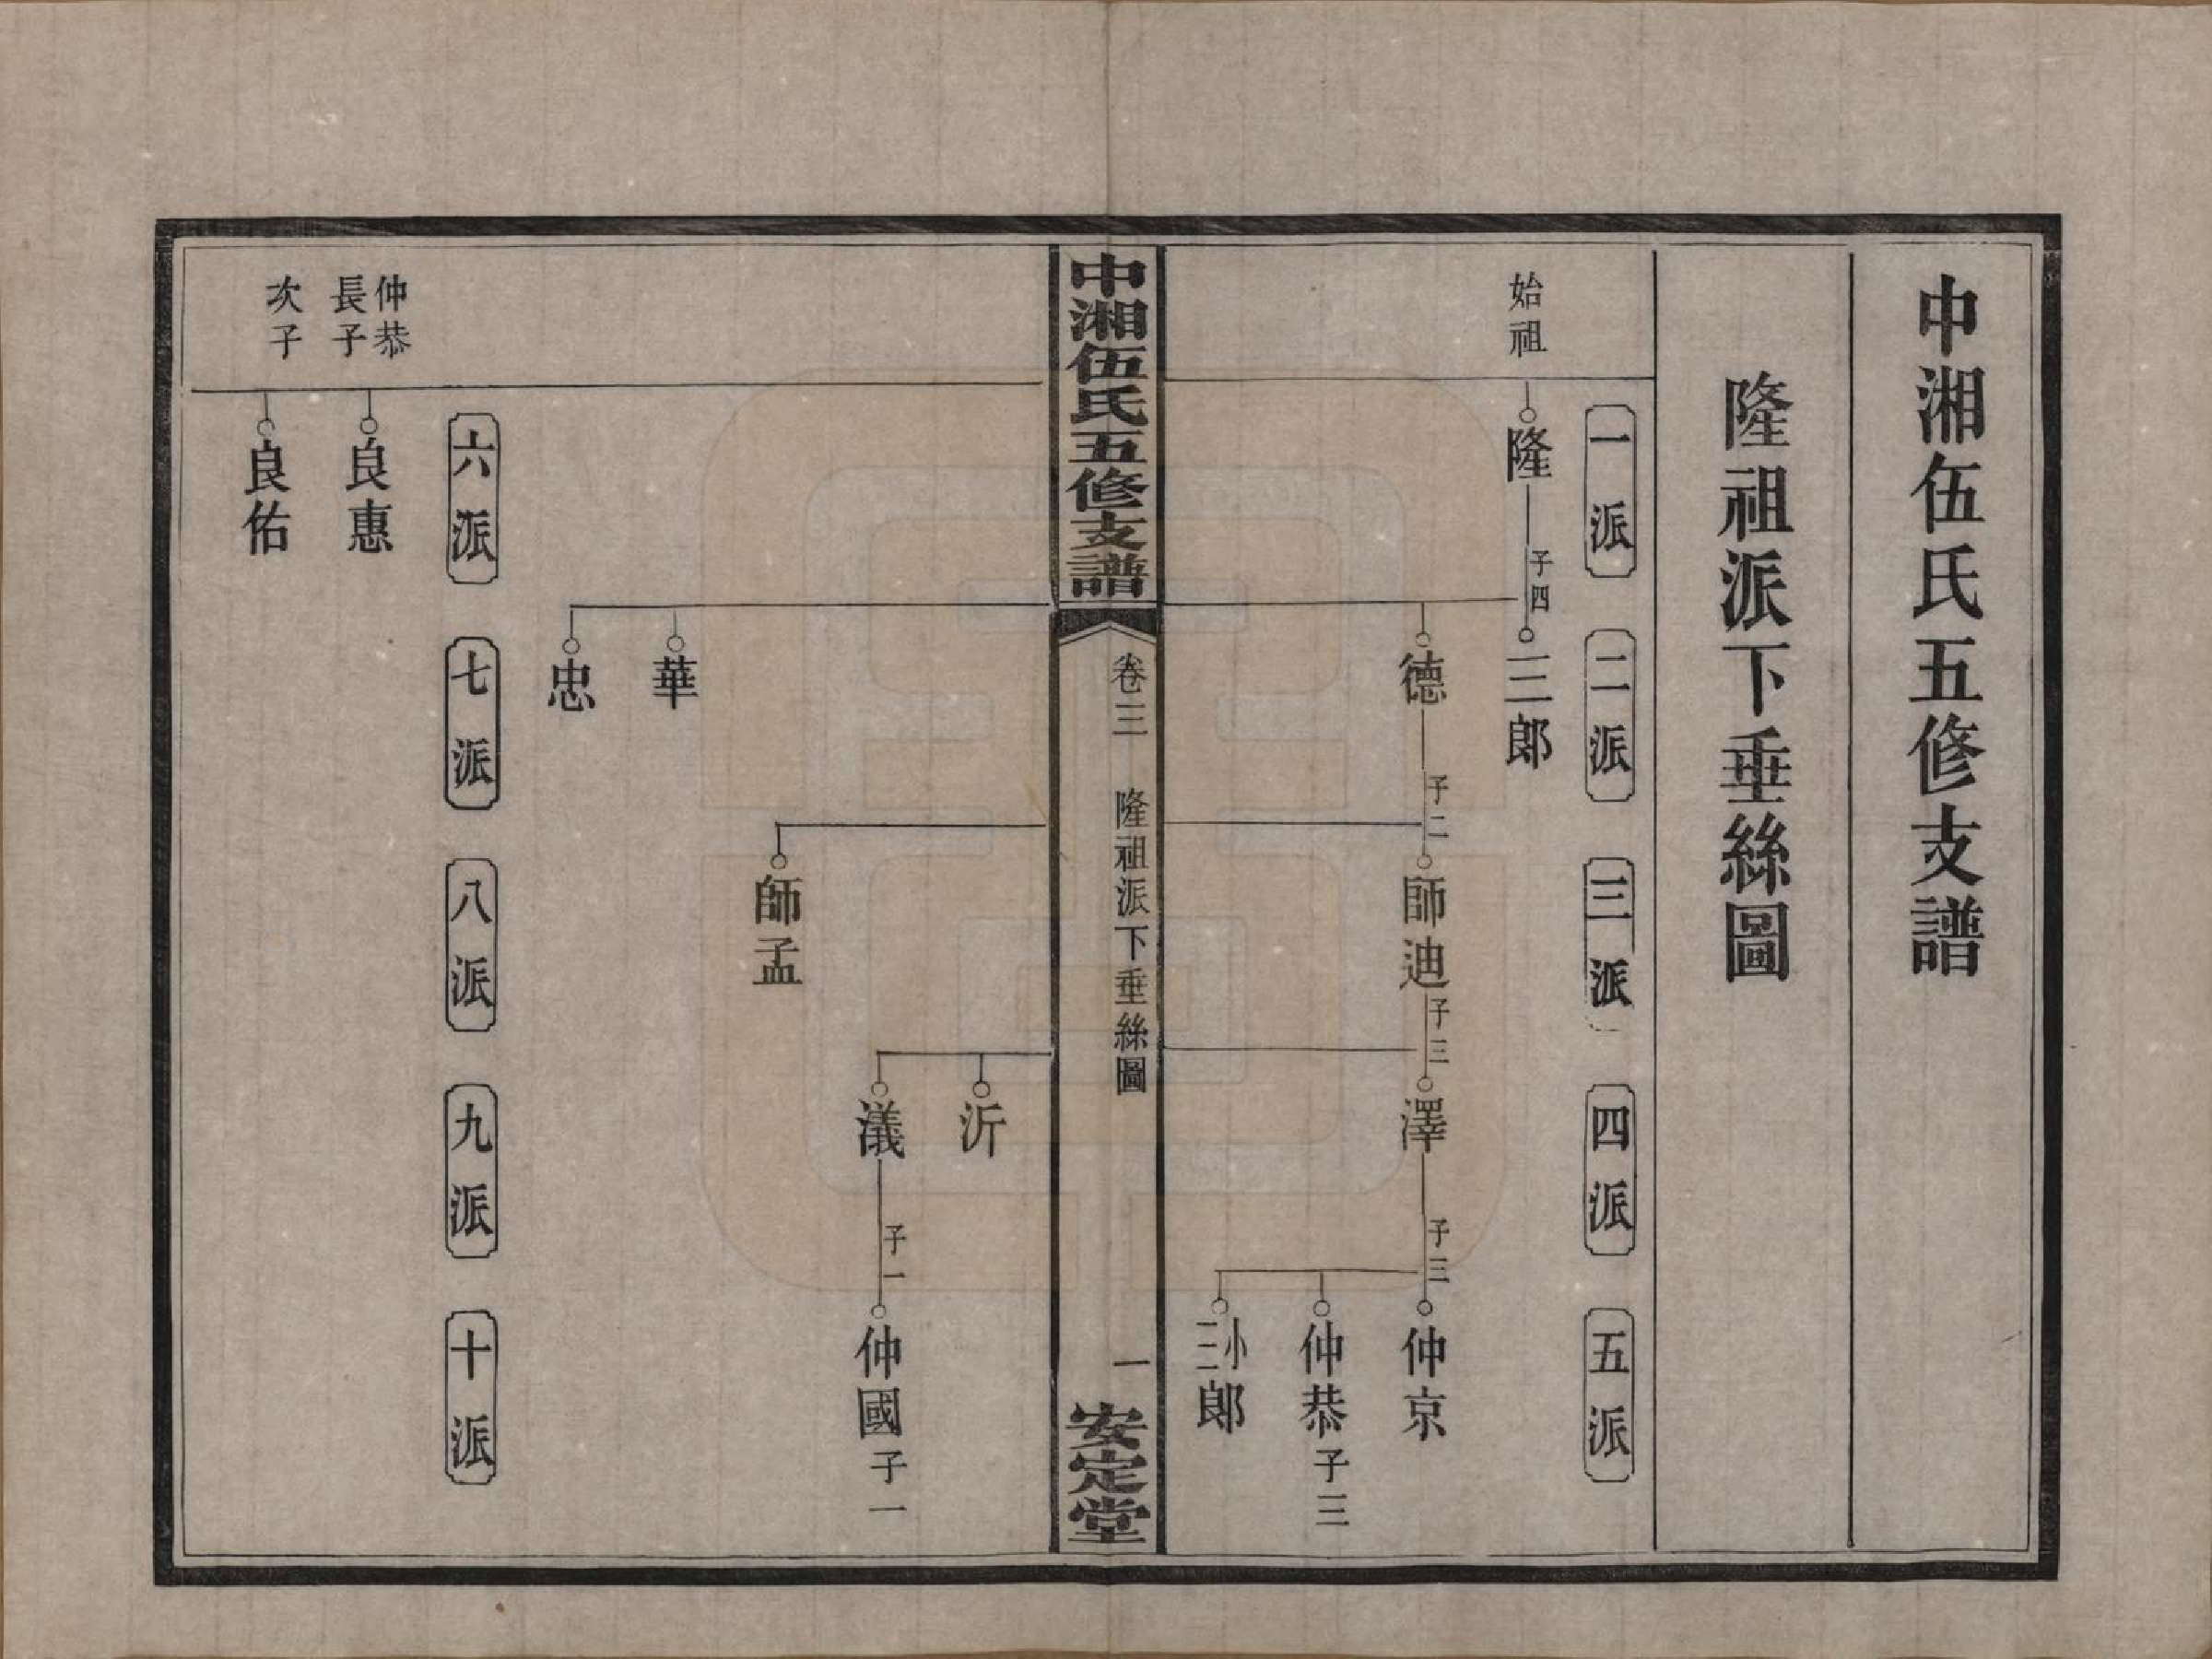 中湘伍氏五修支譜
隆祖派下垂絲圖
一派
二派
三派
四派
五派
始祖
隆
子四
三郎
德
子二
師迪
子三
澤
子三
仲京
仲恭
子三
小三郎
中湘伍氏五修支譜
卷三
隆祖派下垂絲圖
一
安定堂
沂
瀁
子一
仲國
子一
師孟
華
忠
六派
七派
八派
九派
十派
仲恭長子
良惠
次子
良佑